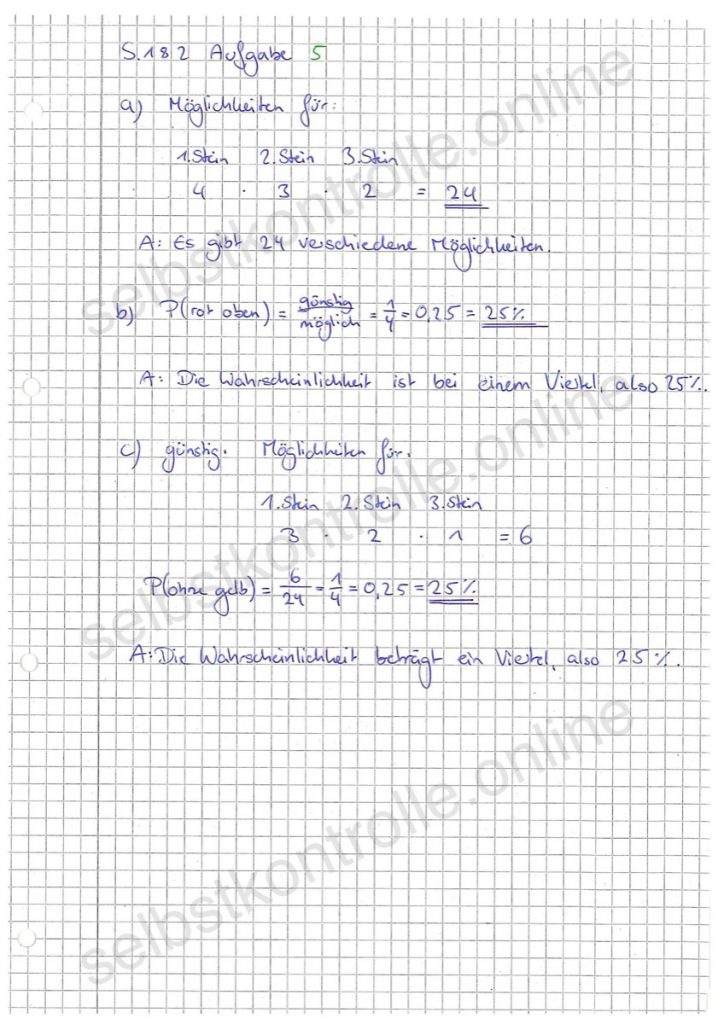 S.182 Aufgabe 5
a) Möglichkeiten für:
1.Stein 2.Stein 3.Stein
4 · 3 · 2 = 24
A: Es gibt 24 verschiedene Möglichkeiten.
b) P(rot oben) = günstig/möglich = 1/4 = 0,25 = 25%
A: Die Wahrscheinlichkeit ist bei einem Viertel, also 25%.
c) günstig. Möglichkeiten für.
1.Stein 2.Stein 3.Stein
3 · 2 · 1 = 6
P(ohne gelb) = 6/24 = 1/4 = 0,25 = 25%
A: Die Wahrscheinlichkeit beträgt ein Viertel, also 25%.
selbstkontrolle.online
selbstkontrolle.online
selbstkontrolle.online